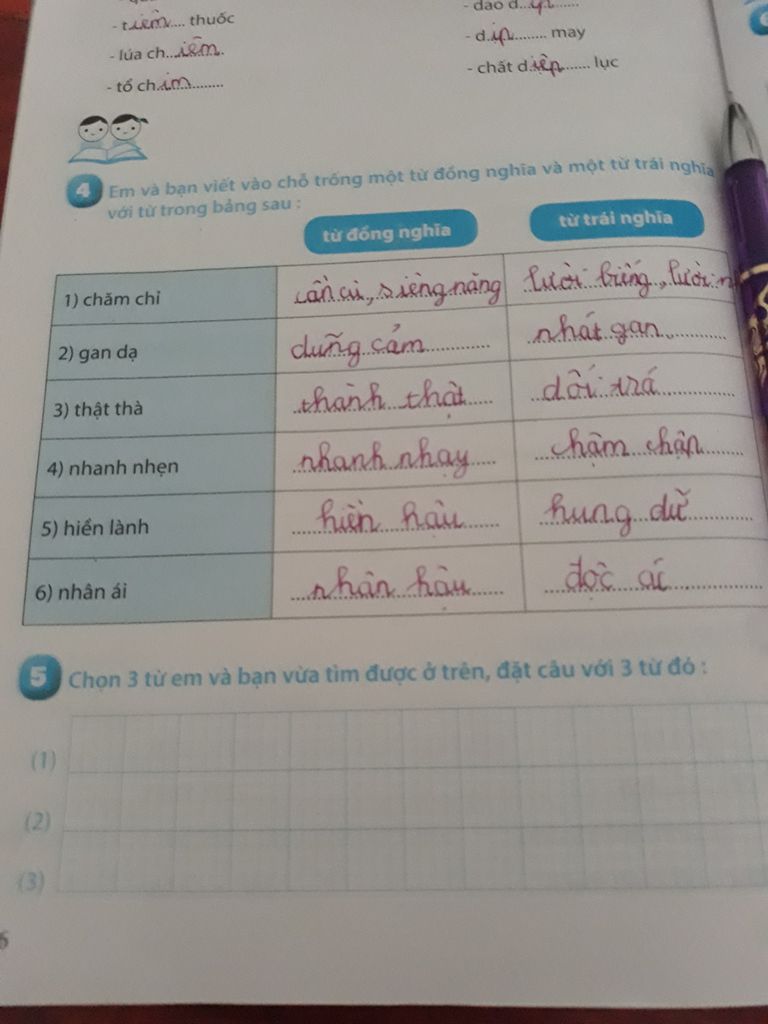 - dao d...ịp......
- tiêm.... thuốc
- d.ịp......... may
- lúa ch...iêm.
- chất d.iệp....... lục
- tổ ch.im..........
4 Em và bạn viết vào chỗ trống một từ đồng nghĩa và một từ trái nghĩa
với từ trong bảng sau :
từ đồng nghĩa từ trái nghĩa
1) chăm chỉ cần cù, siêng năng lười biếng, lười n
2) gan dạ dũng cảm nhát gan
3) thật thà thành thật dối trá
4) nhanh nhẹn nhanh nhạy chậm chạp
5) hiền lành hiền hậu hung dữ
6) nhân ái nhân hậu độc ác
5 Chọn 3 từ em và bạn vừa tìm được ở trên, đặt câu với 3 từ đó :
(1)
(2)
(3)